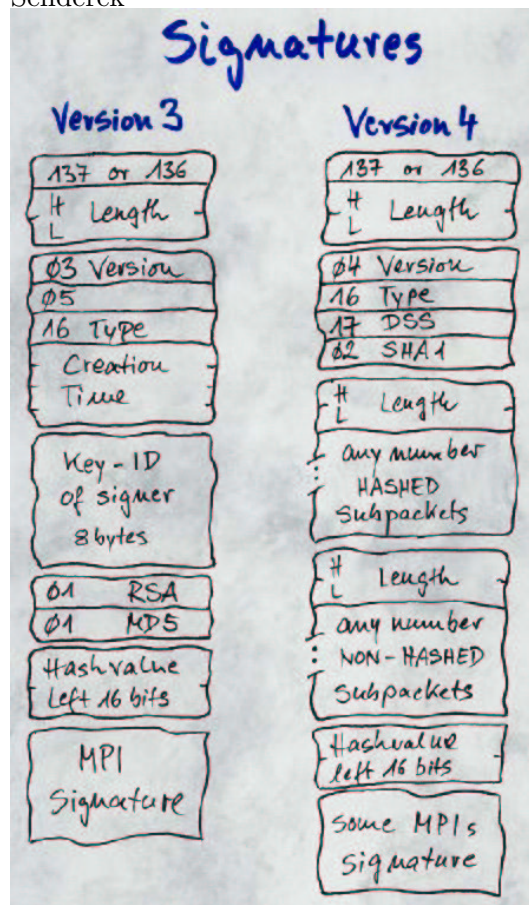 Senderek
Signatures
Version 3
137 or 136
H
L
Length
Ø3 Version
Ø5
16 Type
Creation
Time
Key-ID
of signer
8 bytes
Ø1 RSA
Ø1 MD5
Hashvalue
Left 16 bits
MPI
Signature
Version 4
137 or 136
H
L
Length
Ø4 Version
16 Type
17 DSS
Ø2 SHA1
H
L
Length
any number
HASHED
Subpackets
H
L
Length
any number
NON-HASHED
Subpackets
Hashvalue
left 16 bits
Some MPIs
signature